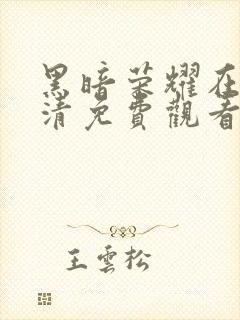 黑暗荣耀在
清免費觀看
王雲松